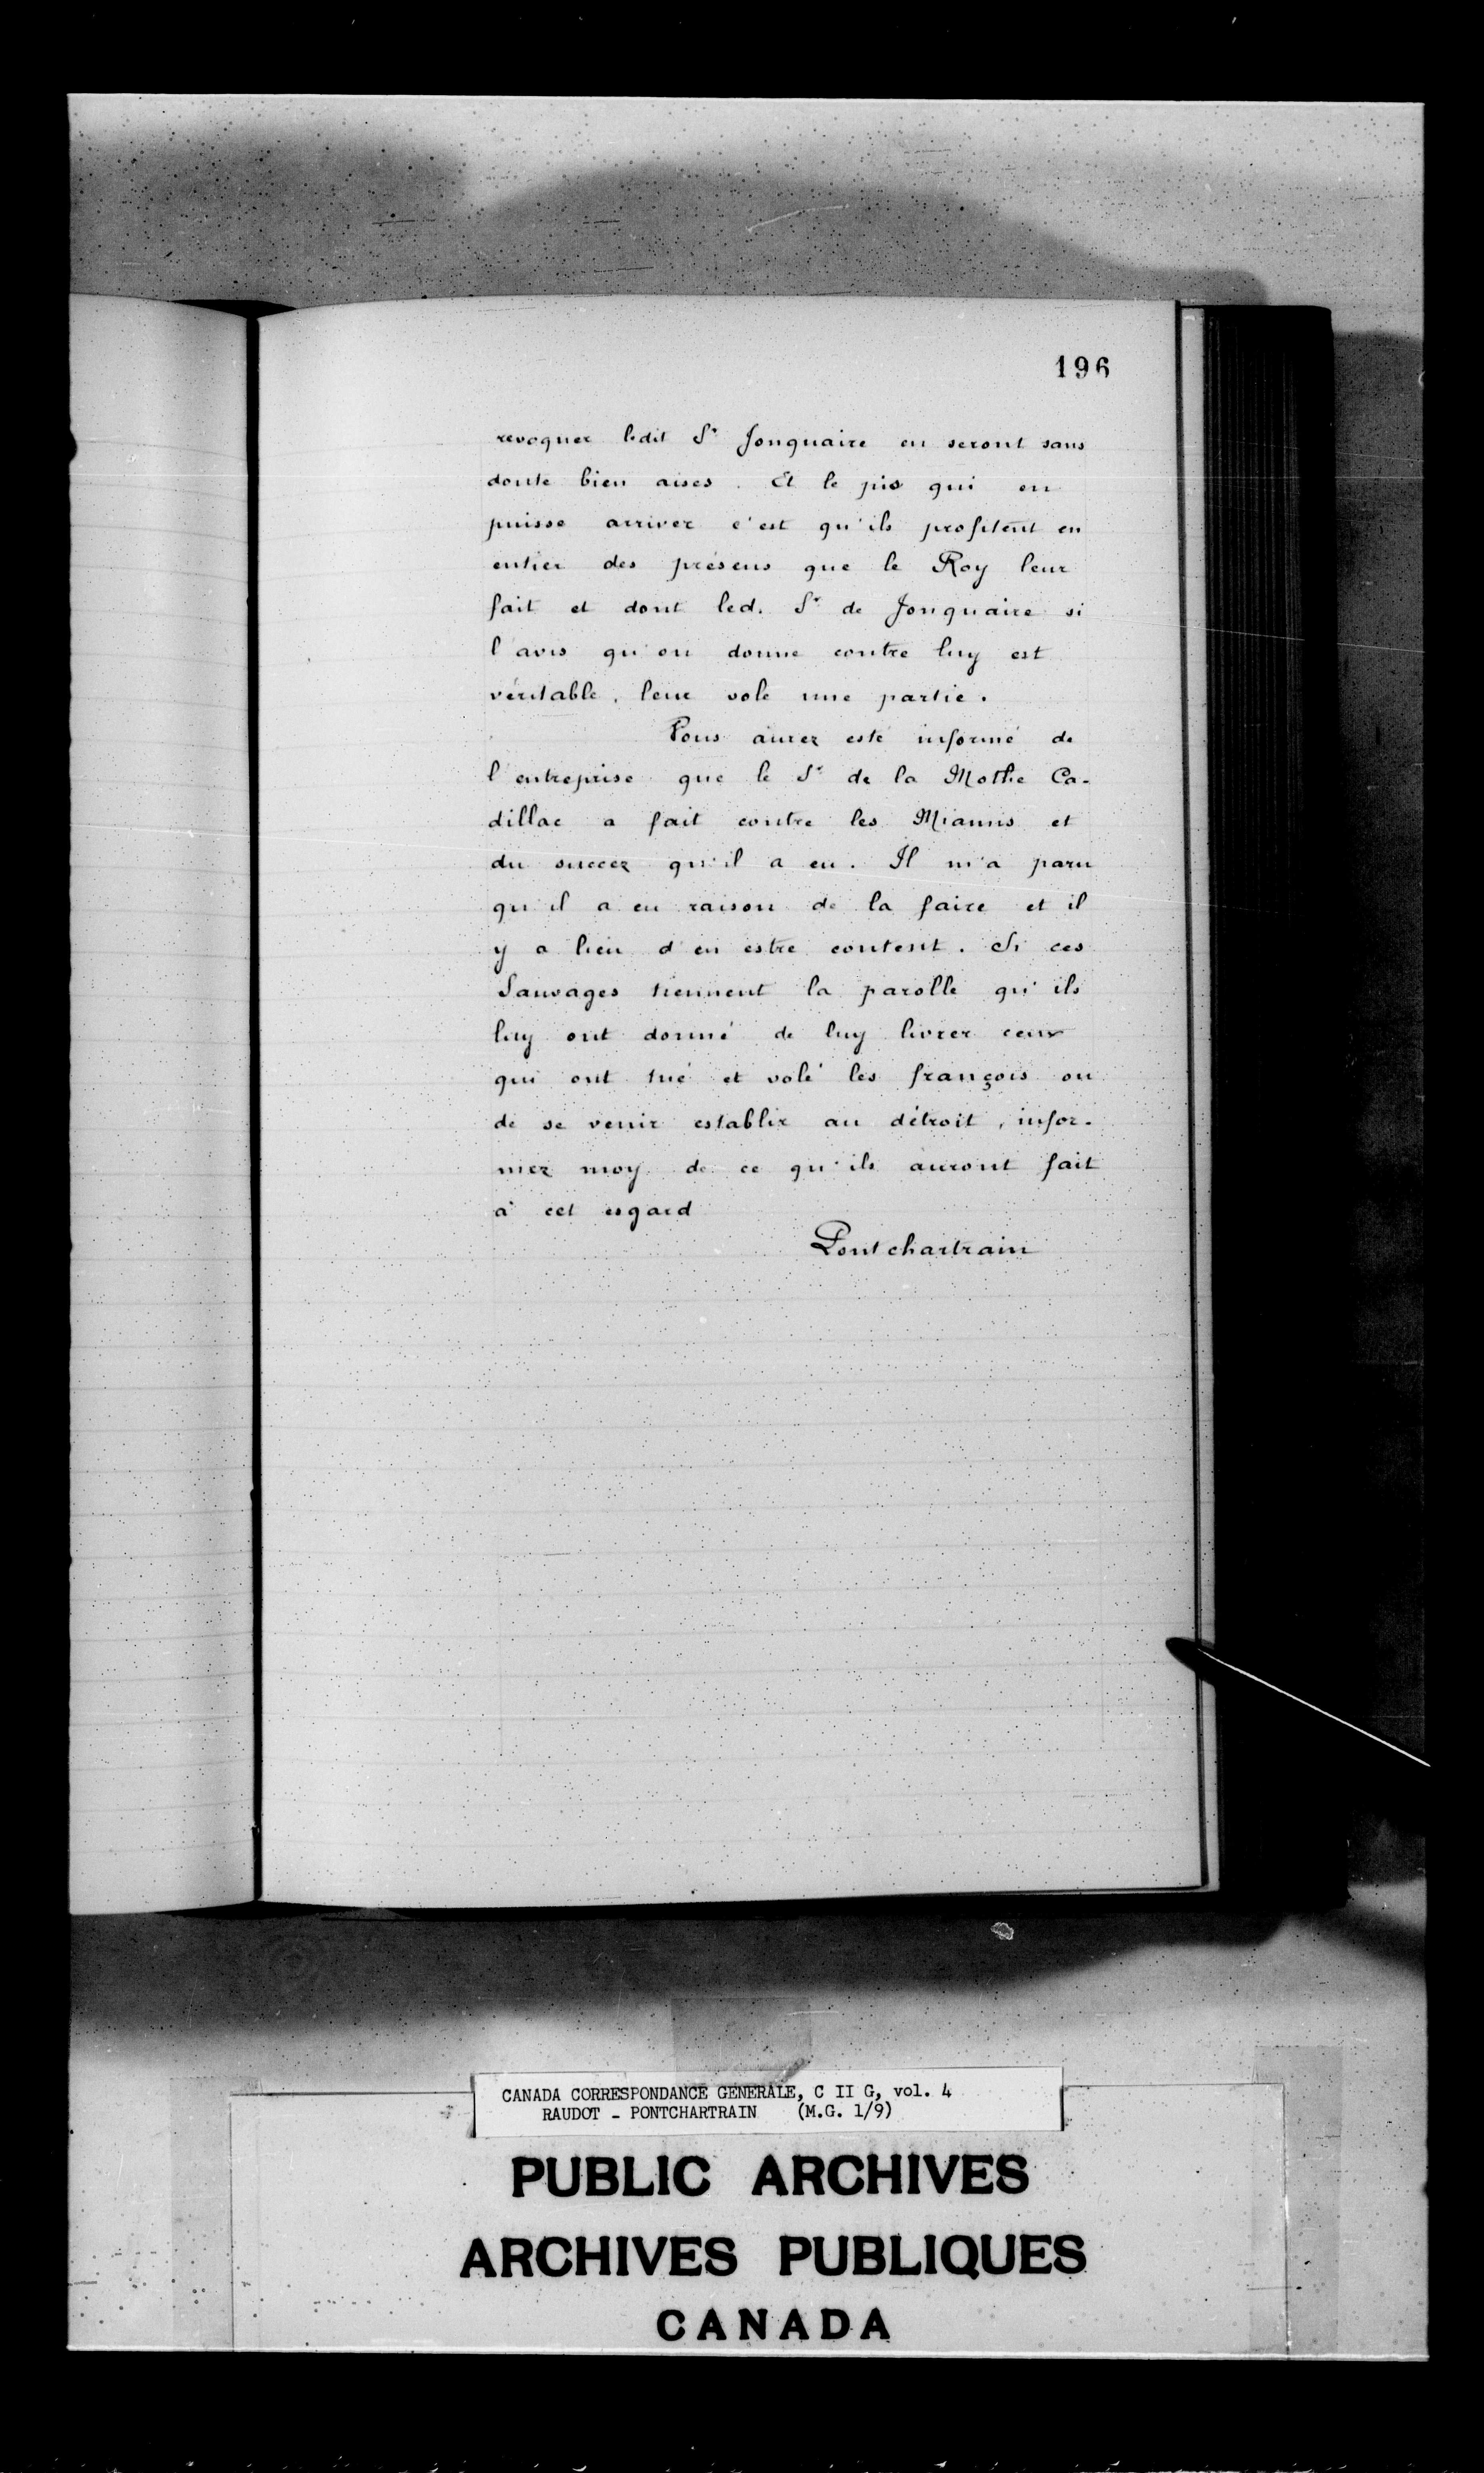 196
revoquer ledit Sr Jonquaire en seront sans
doute bien aises. Et le pis qui en
puisse arriver c'est qu'ils profitent en
entier des présens que le Roy leur
fait et dont led. Sr de Jonquaire si
l'avis qu'on donne contre luy est
véritable, leur vole une partie.
Vous aurez esté informé de
l'entreprise que le Sr de la Mothe Ca-
dillac a fait contre les Miamis et
du succez qu'il a eu. Il m'a paru
qu'il a eu raison de la faire et il
y a lieu d'en estre content. Si ces
Sauvages tiennent la parolle qu'ils
luy ont donné de luy livrer ceux
qui ont tué et volé les françois ou
de se venir establir au détroit, infor-
mez moy de ce qu'ils auront fait
à cet esgard
Pontchartrain
CANADA CORRESPONDANCE GENERALE, C II G, vol. 4
RAUDOT - PONTCHARTRAIN (M.G. 1/9)
PUBLIC ARCHIVES
ARCHIVES PUBLIQUES
CANADA